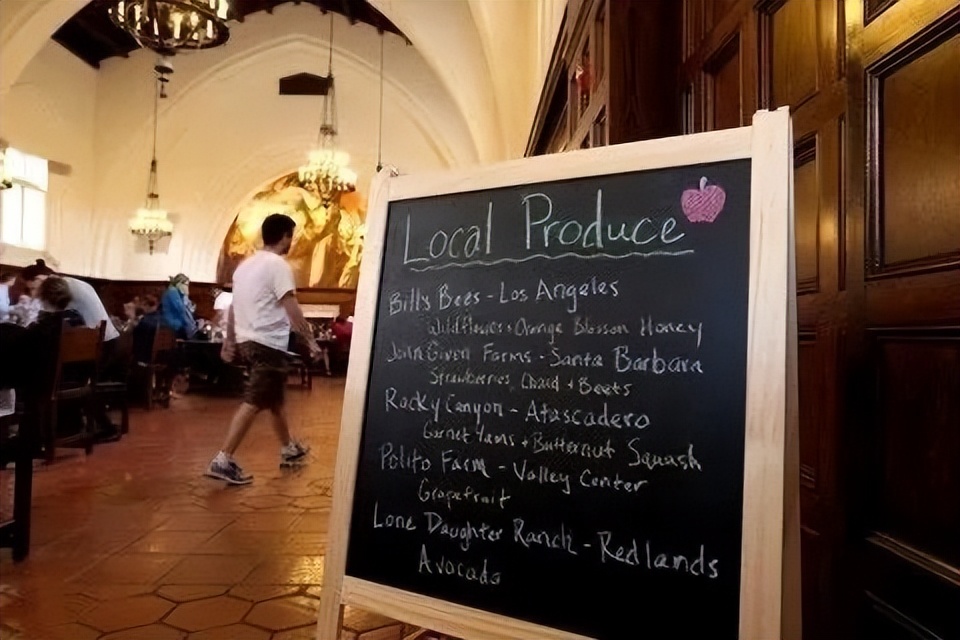 Local Produce
Bills Bees - Los Angeles
Wildflower + Orange Blossom Honey
John Given Farms - Santa Barbara
Strawberries, Chard + Beets
Rocky Canyon - Atascadero
Garnet Yams + Butternut Squash
Polito Farm - Valley Center
Grapefruit
Lone Daughter Ranch - Redlands
Avocado